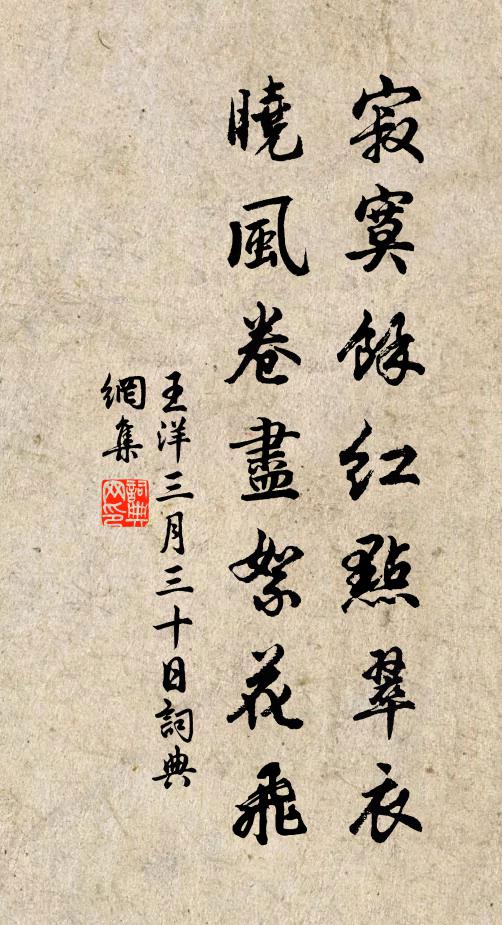 寂寞餘红點翠衣
曉風卷盡絮花飛
王洋三月三十日詞典
網集
詞典
网印